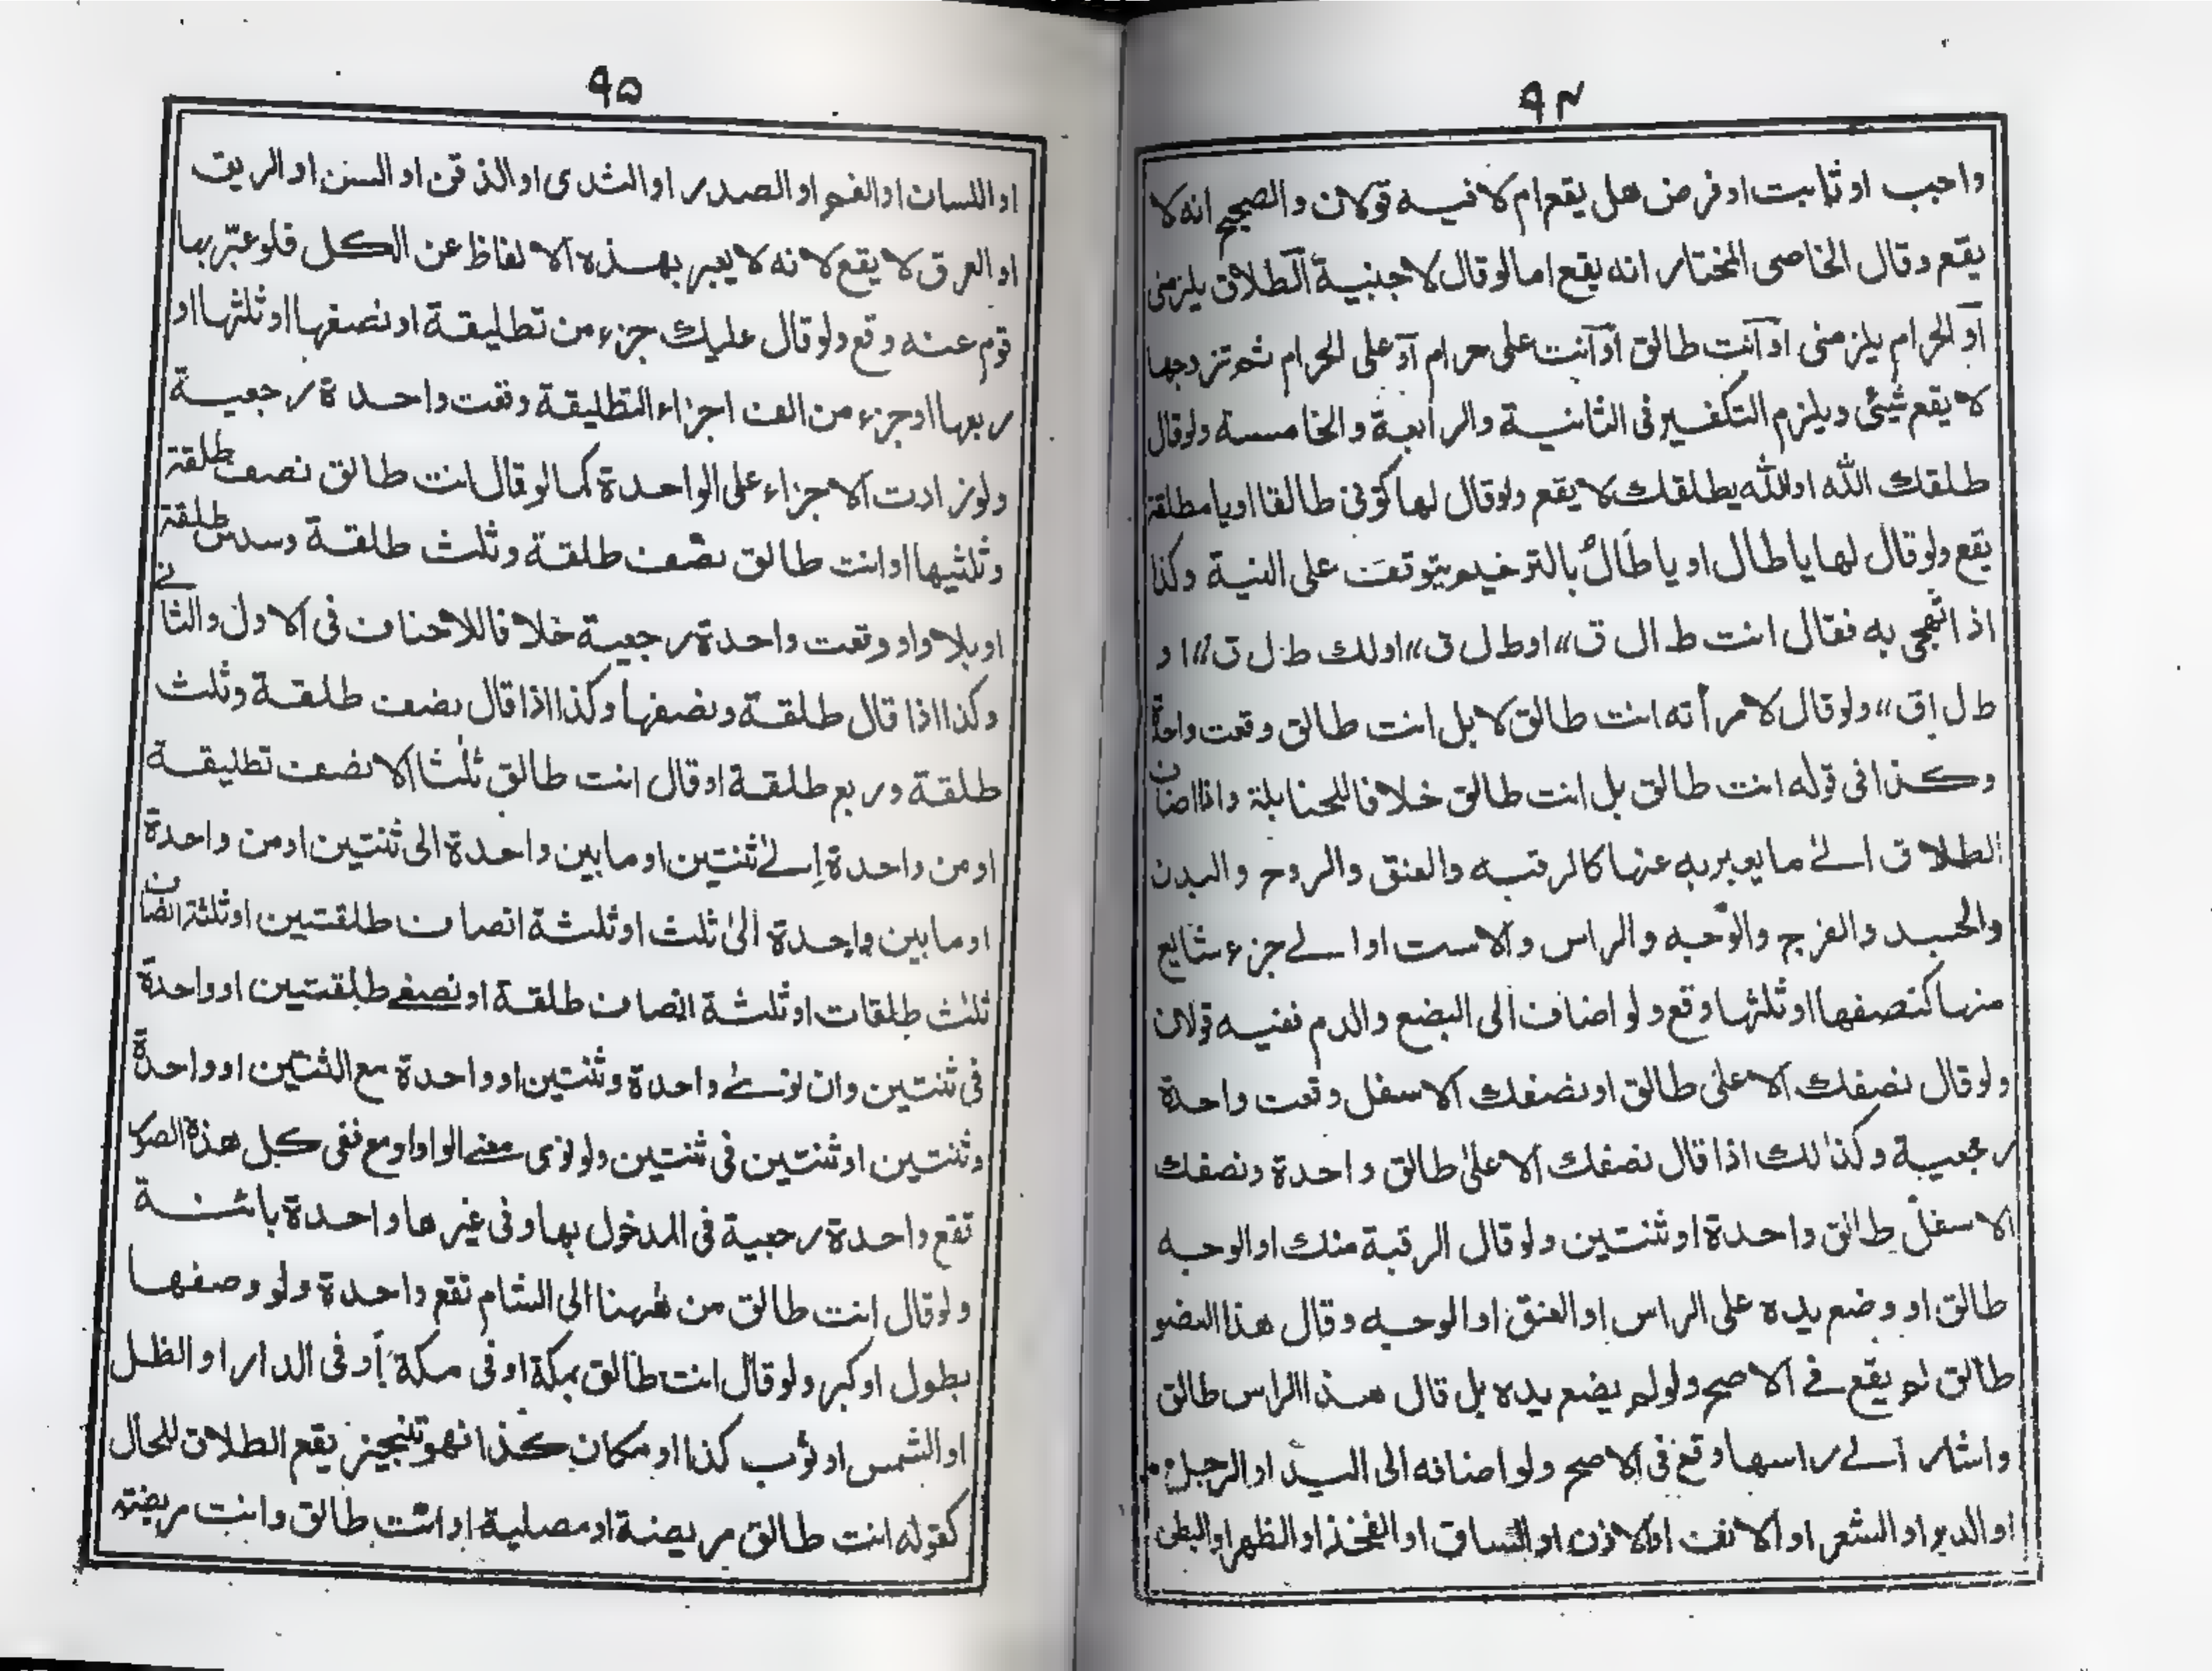 ٩٤
واجب او ثابت او فرض هل يقع ام لا فيه قولان والصحيح انه لا
يقع وقال الخاصى المختار انه يقع اما لو قال لاجنبية الطلاق يلزمنى
او الحرام يلزمنى او انت طالق او انت على حرام او على الحرام ثم تزوجها
لا يقع شيئى ويلزم التكفير فى الثانية والرابعة والخامسة ولو قال
طلقك الله او الله يطلقك لا يقع ولو قال لها كونى طالقا او يا مطلقة
يقع ولو قال لها يا طال او يا طالُ بالترخيم يتوقف على النية وكذا
اذا تهجى به فقال انت ط ال ق،، او ط ل ق،، او لك ط ل ق،، او
ط ل اق،، ولو قال لامرأته انت طالق لا بل انت طالق وقعت واحدة
وكذا فى قوله انت طالق بل انت طالق خلافا للحنابلة واذا اضاف
الطلاق الے ما يعبر به عنها كالرقبه والعنق والروح والبدن
والجسد والفرج والوجه والراس والاست او الے جزء شايع
منها كنصفها او ثلثها وقع ولو اضاف الى البضع والدم ففيه قولان
ولو قال نصفك الاعلى طالق او نصفك الاسفل وقعت واحدة
رجعية وكذلك اذا قال نصفك الاعلى طالق واحدة ونصفك
الاسفل طالق واحدة او ثنتين ولو قال الرقبة منك او الوجه
طالق او وضع يده على الراس او العنق او الوجه وقال هذا العضو
طالق لم يقع فے الاصح ولو لم يضع يده بل قال هذا الراس طالق
واشار الے راسها وقع فى الاصح ولو اضافه الى اليد او الرجل
او الدبر او الشعر او الانف او الاذن او الساق او الفخذ او الظهر او البطن
٩٥
او اللسان او الفم او الصدر او الثدى او الذقن او السن او الريق
او العرق لا يقع لانه لا يعبر بهذه الالفاظ عن الكل فلو عبّر بها
قوم عنه وقع ولو قال عليك جزء من تطليقة او نصفها او ثلثها او
ربعها او جزء من الف اجزاء التطليقة وقعت واحدة رجعية
ولو زادت الاجزاء على الواحدة كما لو قال انت طالق نصف طلقة
وثلثيها او انت طالق نصف طلقة وثلث طلقة وسدس طلقة
او بلا واو وقعت واحدة رجعية خلافا للاحناف فى الاول والثانے
وكذا اذا قال طلقة ونصفها وكذا اذا قال نصف طلقة وثلث
طلقة وربع طلقة او قال انت طالق ثلثا الا نصف تطليقة
او من واحدة إلے ثنتين او ما بين واحدة الى ثنتين او من واحدة
او ما بين واحدة الى ثلث او ثلثة انصاف طلقتين او ثلثة انصاف
ثلث طلقات او ثلثة انصاف طلقة او نصفے طلقتين او واحدة
فى ثنتين وان نوے واحدة وثنتين او واحدة مع الثنتين او واحدة
وثنتين او ثنتين فى ثنتين ولو نوى معنے الواو او مع ففى كل هذه الصور
تقع واحدة رجعية فى المدخول بها وفى غيرها واحدة بائنة
ولو قال انت طالق من ههنا الى الشام تقع واحدة ولو وصفها
بطول او كبر ولو قال انت طالق بمكة او فى مكة أو فى الدار او الظل
او الشمس او ثوب كذا او مكان كذا فهو تنجيز يقع الطلاق للحال
كقوله انت طالق مريضة او مصلية او انت طالق وانت مريضة